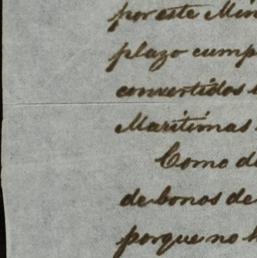 por este Min
plazo cump
convertidos
Maritimas
Como d
de bonos de
porque no h